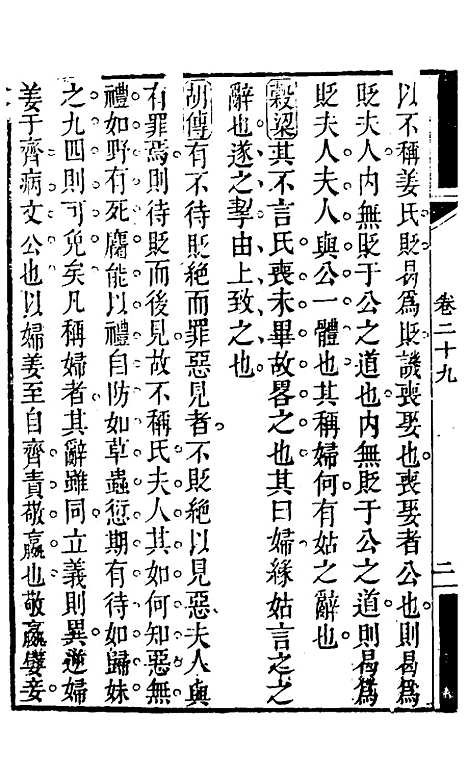 以不稱姜氏貶曷爲貶譏喪娶也喪娶者公也則曷爲
貶夫人内無貶于公之道也内無貶于公之道則曷爲
貶夫人夫人與公一體也其稱婦何有姑之辭也
穀梁其不言氏喪未畢故畧之也其曰婦緣姑言之之
辭也遂之挈由上致之也
胡傳有不待貶絶而罪惡見者不貶絶以見惡夫人與
有罪焉則待貶而後見故不稱氏夫人其如何知惡無
禮如野有死麕能以禮自防如草蟲愆期有待如歸妹
之九四則可免矣凡稱婦者其辭雖同立義則異逆婦
姜于齊病文公也以婦姜至自齊責敬嬴也敬嬴嬖妾
卷二十九
二